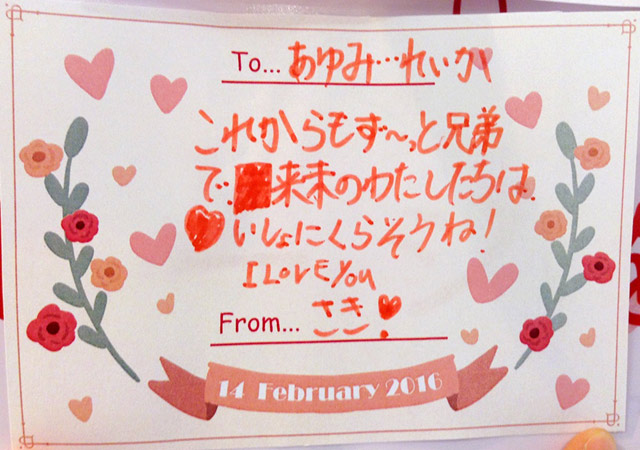 To... あゆみ…れいか
これからもず〜っと兄弟
で 来未のわたしたちは
いしょにくらそうね!
I LOVE YOU
From... さき
14 February 2016